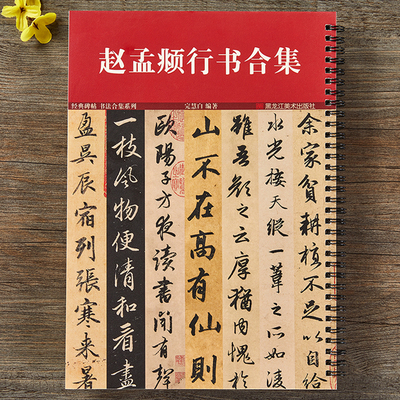 赵孟頫行书合集
经典碑帖 书法合集系列
完慧白 编著
黑龙江美术出版社
余家貧耕植不足以自给
水光接天縱一葦之所如凌
雖吾顔之云厚猶内愧於
山不在高有仙則
歐陽子方夜讀書聞有聲
一枝風物便清和看盡
盈昃辰宿列張寒来暑